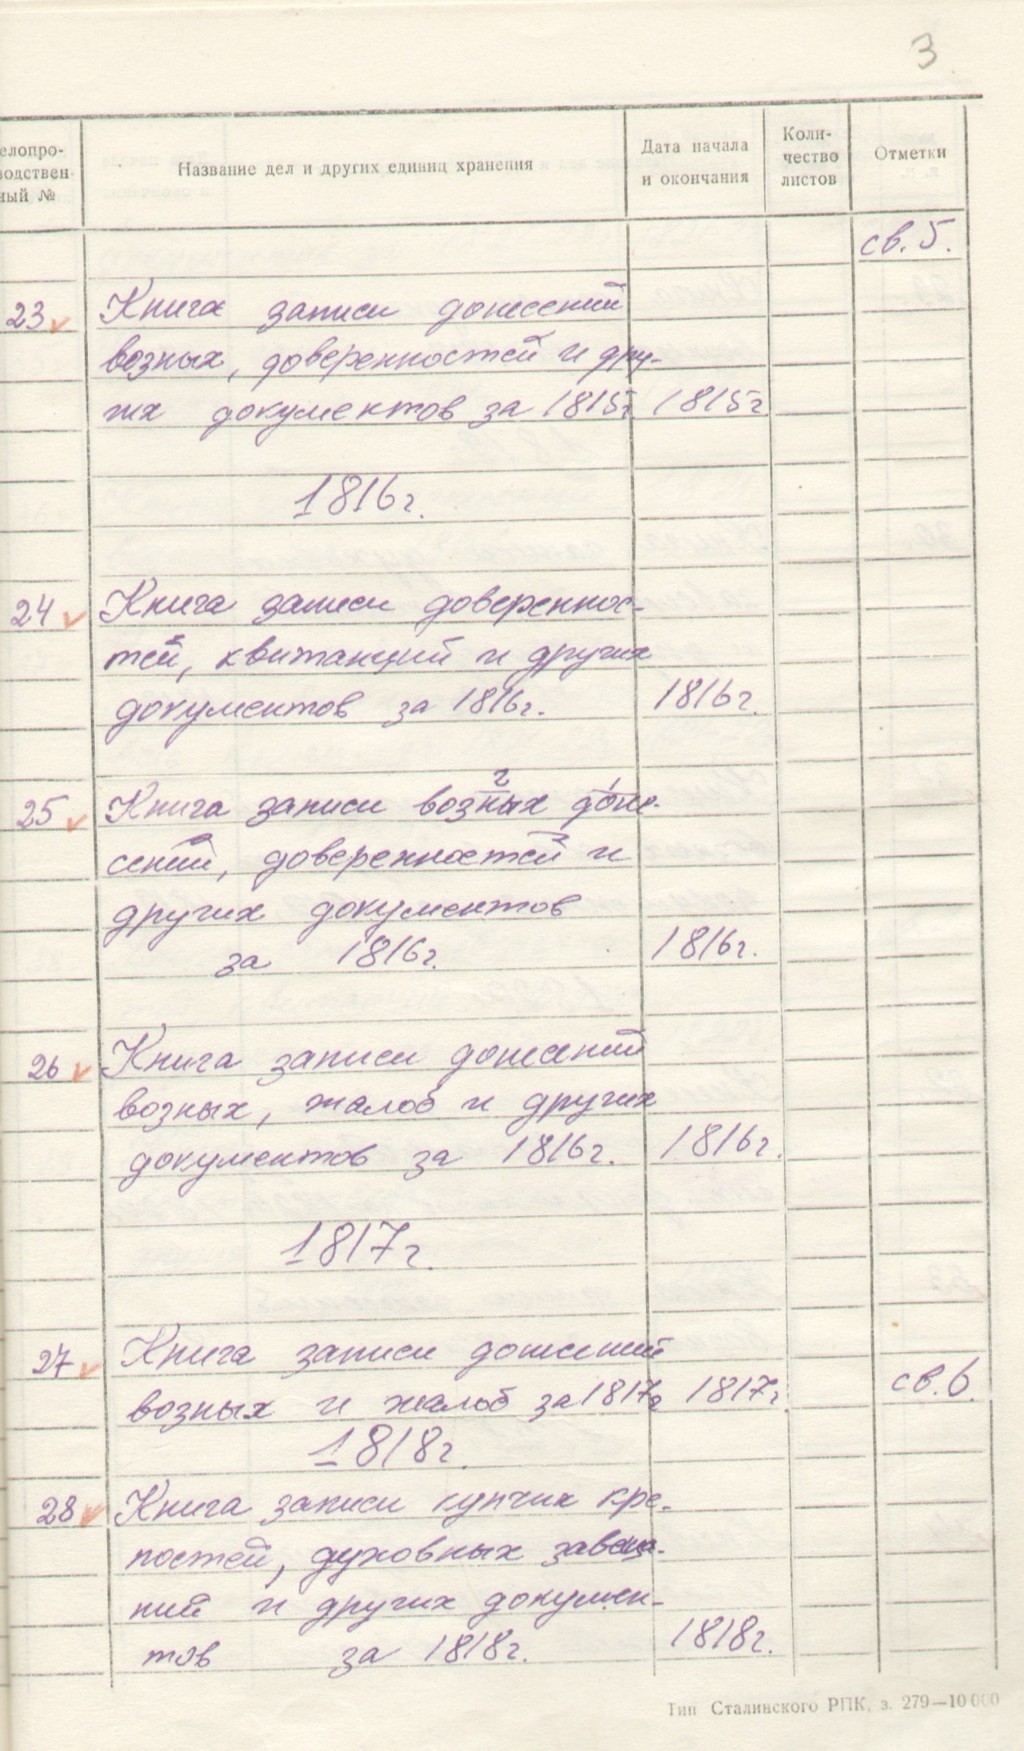 3
елопро-
водствен-
ный №
Название дел и других единиц хранения
Дата начала
и окончания
Коли-
чество
листов
Отметки
св. 5.
23 Книга записи донесений
возных, доверенностей и дру-
гих документов за 1815г. 1815г
1816г.
24 Книга записи довереннос-
тей, квитанций и других
документов за 1816г. 1816г.
2 1
25 Книга записи возных доне-
сений, доверенностей и
других документов
за 1816г. 1816г.
26 Книга записи донесений
возных, жалоб и других
документов за 1816г. 1816г.
1817г.
27 Книга записи донесений
возных и жалоб за 1817г 1817г. св. 6.
1818г.
28 Книга записи купчих кре-
постей, духовных завеща-
ний и других докумен-
тов за 1818г. 1818г.
Тип Сталинского РПК, з. 279—10 000